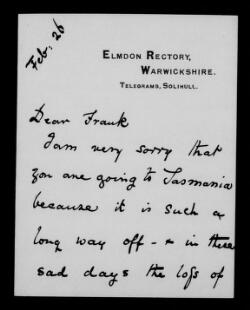 Feb: 26
ELMDON RECTORY,
WARWICKSHIRE.
TELEGRAMS, SOLIHULL.
Dear Frank
I am very sorry that
you are going to Tasmania
because it is such a
long way off - & in these
sad days the loss of